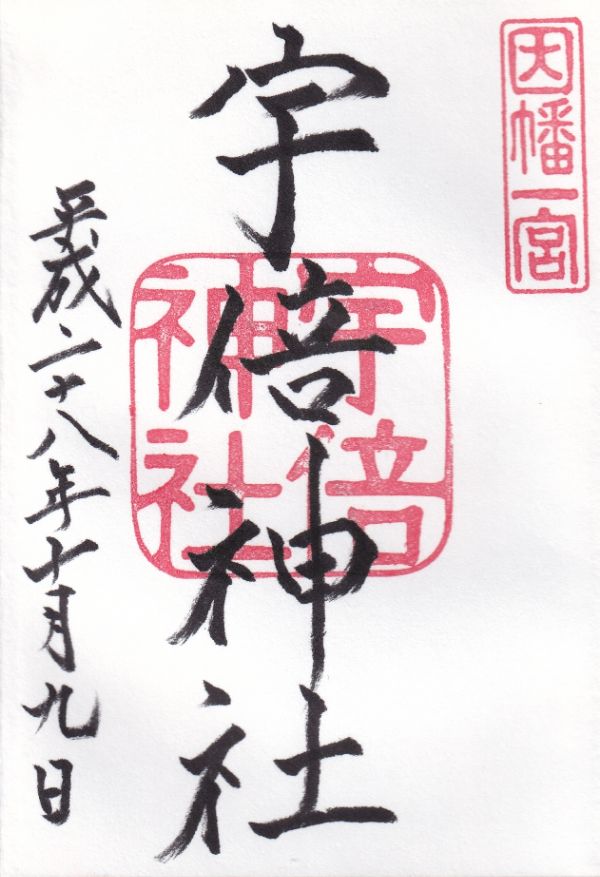 因幡一宮
宇倍神社
宇倍
神社
平成二十八年十月九日